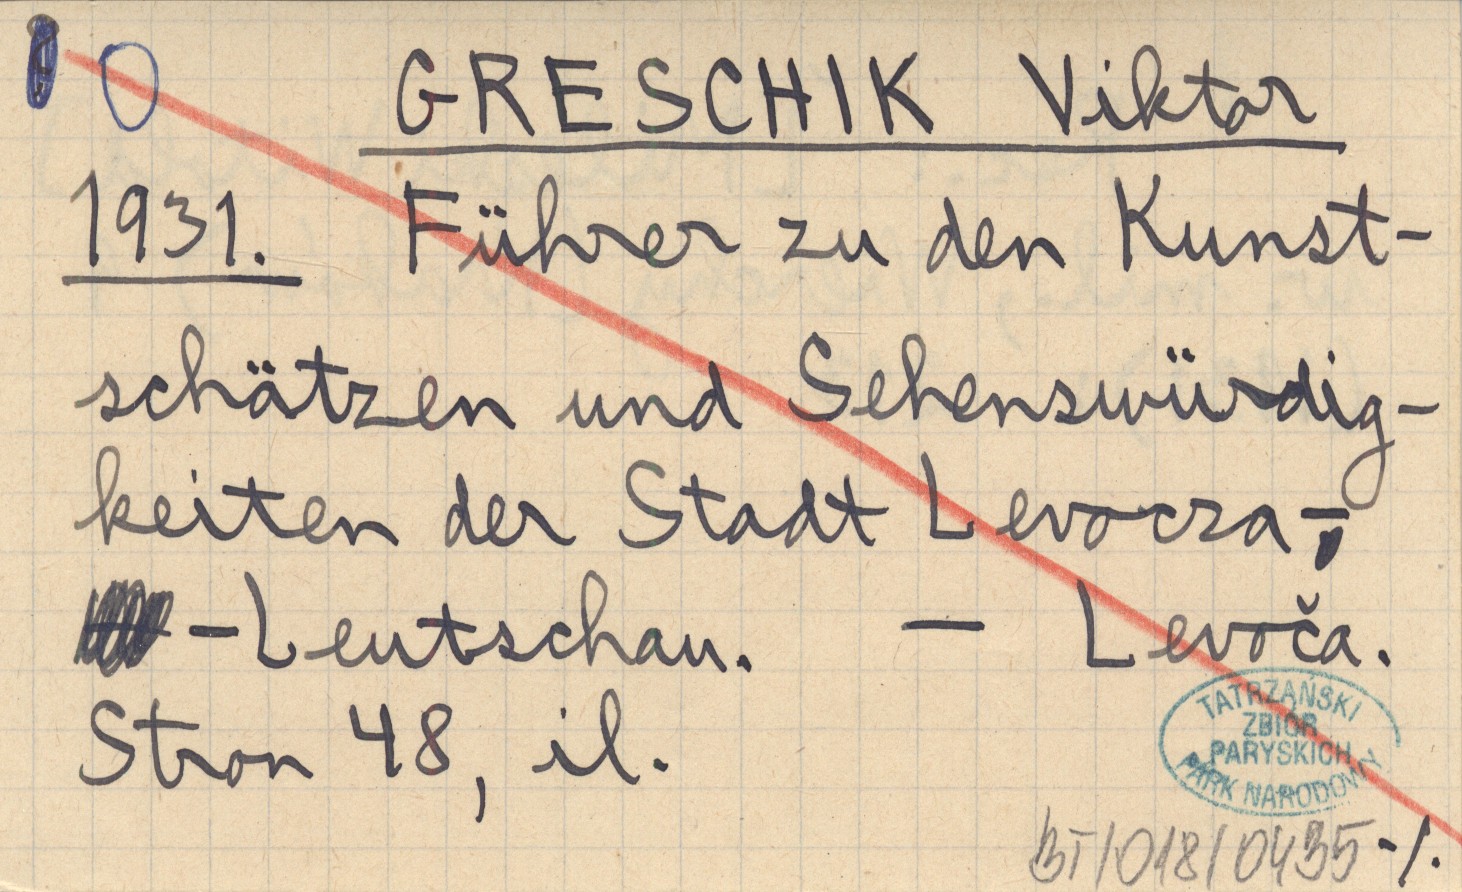 GRESCHIK Viktor
1931. Führer zu den Kunst-
schätzen und Sehenswürdig-
keiten der Stadt Levocza-,
-Leutschau. — Levoča.
Stron 48, il.
TATRZAŃSKI
ZBIÓR
PARYSKICH
PARK NARODOWY
BT/018/0435 -/.